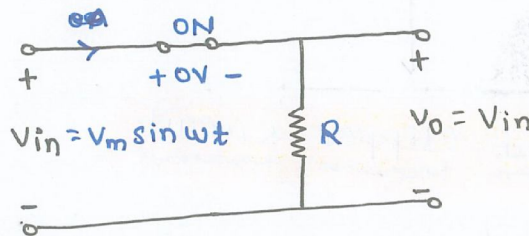 ON
+ +0V - +
Vin = Vm sin ωt R v0 = Vin
- -